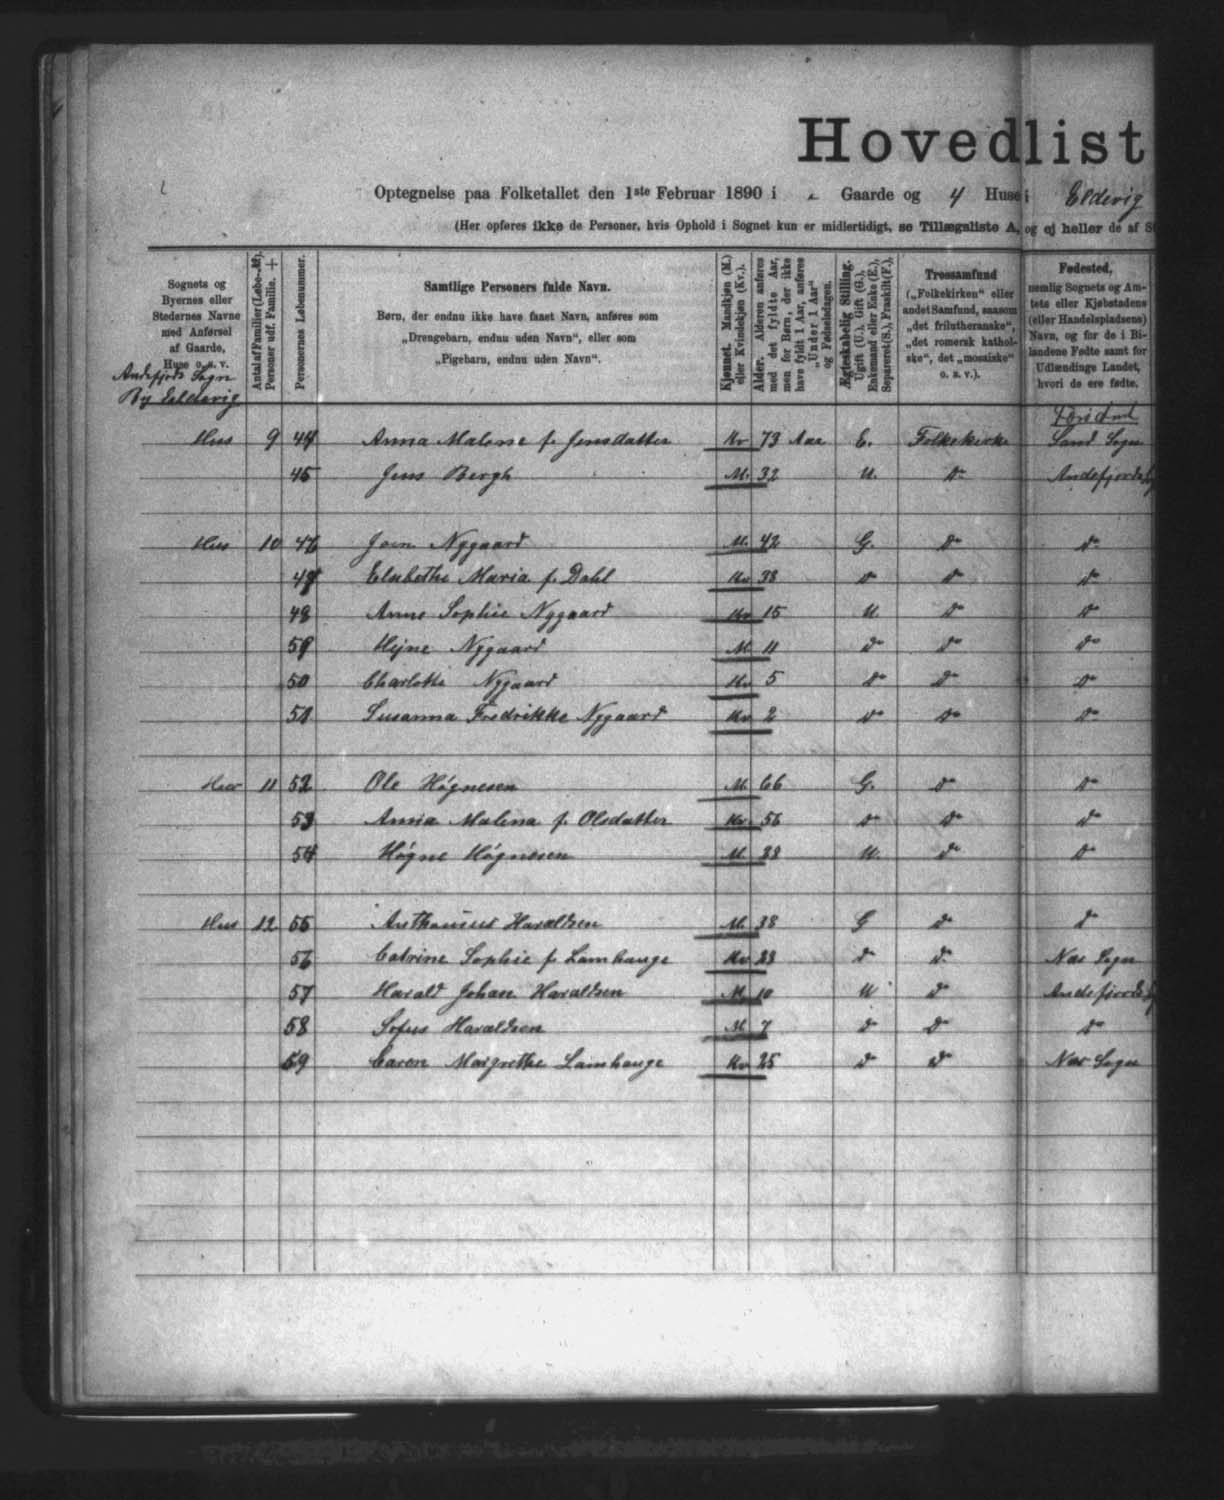 Hovedlist
Optegnelse paa Folketallet den 1ste Februar 1890 i " Gaarde og 4 Huse i Eldevig
(Her opføres ikke de Personer, hvis Ophold i Sognet kun er midlertidigt, se Tillægsliste A, og ej heller de af S
Sognets og Byernes eller Stedernes Navne med Anførsel af Gaarde, Huse o. s. v.
Antal af Familier (Løbe-Nr). Personer udf. Familie. +
Personernes Løbenummer.
Samtlige Personers fulde Navn.
Børn, der endnu ikke have faaet Navn, anføres som
„Drengebarn, endnu uden Navn", eller som
„Pigebarn, endnu uden Navn".
Kjønnet. Mandkjøn (M.) eller Kvindekjøn (Kv.).
Alder. Alderen anføres med det fyldte Aar, men for Børn, der ikke have fyldt 1 Aar, anføres „Under 1 Aar" og Fødselsdagen.
Ægteskabelig Stilling. Ugift (U.), Gift (G.), Enkemand eller Enke (E.), Separeret (S.), Fraskilt (F.),
Trossamfund („Folkekirken" eller andet Samfund, saasom „det frilutheranske", „det romersk katholske", det „mosaiske" o. s. v.).
Fødested, nemlig Sognets og Amtets eller Kjøbstadens (eller Handelspladsens) Navn, og for de i Bilandene Fødte samt for Udlændinge Landet, hvori de ere fødte.
Andefjords Sogn
By Eldevig
Hus 9 44 Anna Malene f. Jensdatter Kv 73 Aar E. Folkekirke Sand Sogn
45 Jens Bergh M. 32 U. Do Andefjords
Hus 10 46 Joen Nygaard M. 42 G. Do Do
47 Elsbethe Maria f. Dahl Kv 38 Do Do Do
48 Anne Sophie Nygaard Kv 15 U. Do Do
59 Hejne Nygaard M 11 Do Do Do
50 Charlotte Nygaard Kv 5 Do Do Do
51 Susanna Fredrikke Nygaard Kv 2 Do Do Do
Hus 11 52 Ole Høgnesen M. 66 G. Do Do
53 Anna Malena f. Olsdatter Kv 56 Do Do Do
54 Høgne Høgnesen M. 28 U. Do Do
Hus 12 55 Haraldsen M. 38 G Do Do
56 Catrine Sophie f. Lamhauge Kv 28 Do Do Næs Sogn
57 Harald Johan Haraldsen M. 10 U Do Andefjords
58 Sofus Haraldsen M 7 Do Do Do
59 Caren Margrethe Lamhauge Kv 25 Do Do Næs Sogn